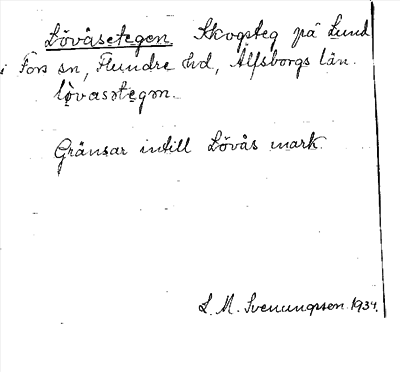 Lövåsetegen. Skogsteg på Lund
i Fors sn, Flundre hd, Älfsborgs län.
lö̀vasətegən.
Gränsar intill Lövås mark.
L. M. Svenungsson. 1934.